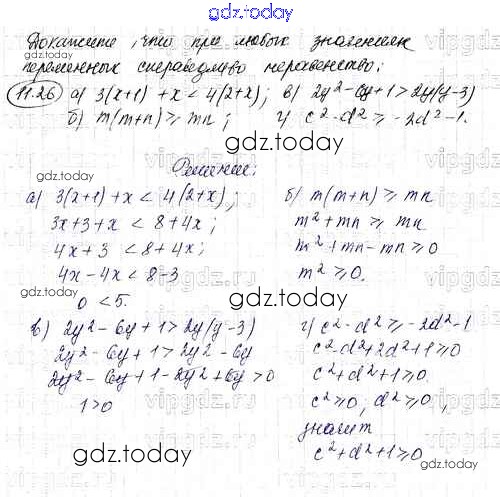 gdz.today
Докажите, что при любых значениях
переменных справедливо неравенство:
11.26 а) 3(x+1) + x < 4(2+x); в) 2y² - 6y + 1 > 2y(y-3)
б) m(m+n) ≥ mn; г) c² - d² ≥ -2d² - 1.
gdz.today
Решение:
а) 3(x+1) + x < 4(2+x);
3x + 3 + x < 8 + 4x;
4x + 3 < 8 + 4x;
4x - 4x < 8 - 3
0 < 5.
б) m(m+n) ≥ mn
m² + mn ≥ mn
m² + mn - mn ≥ 0
m² ≥ 0.
gdz.today
gdz.today
в) 2y² - 6y + 1 > 2y(y-3)
2y² - 6y + 1 > 2y² - 6y
2y² - 6y + 1 - 2y² + 6y > 0
1 > 0
г) c² - d² ≥ -2d² - 1
c² - d² + 2d² + 1 ≥ 0
c² + d² + 1 ≥ 0.
c² ≥ 0, d² ≥ 0,
значит
c² + d² + 1 ≥ 0
gdz.today
gdz.today
vipgdz.ru